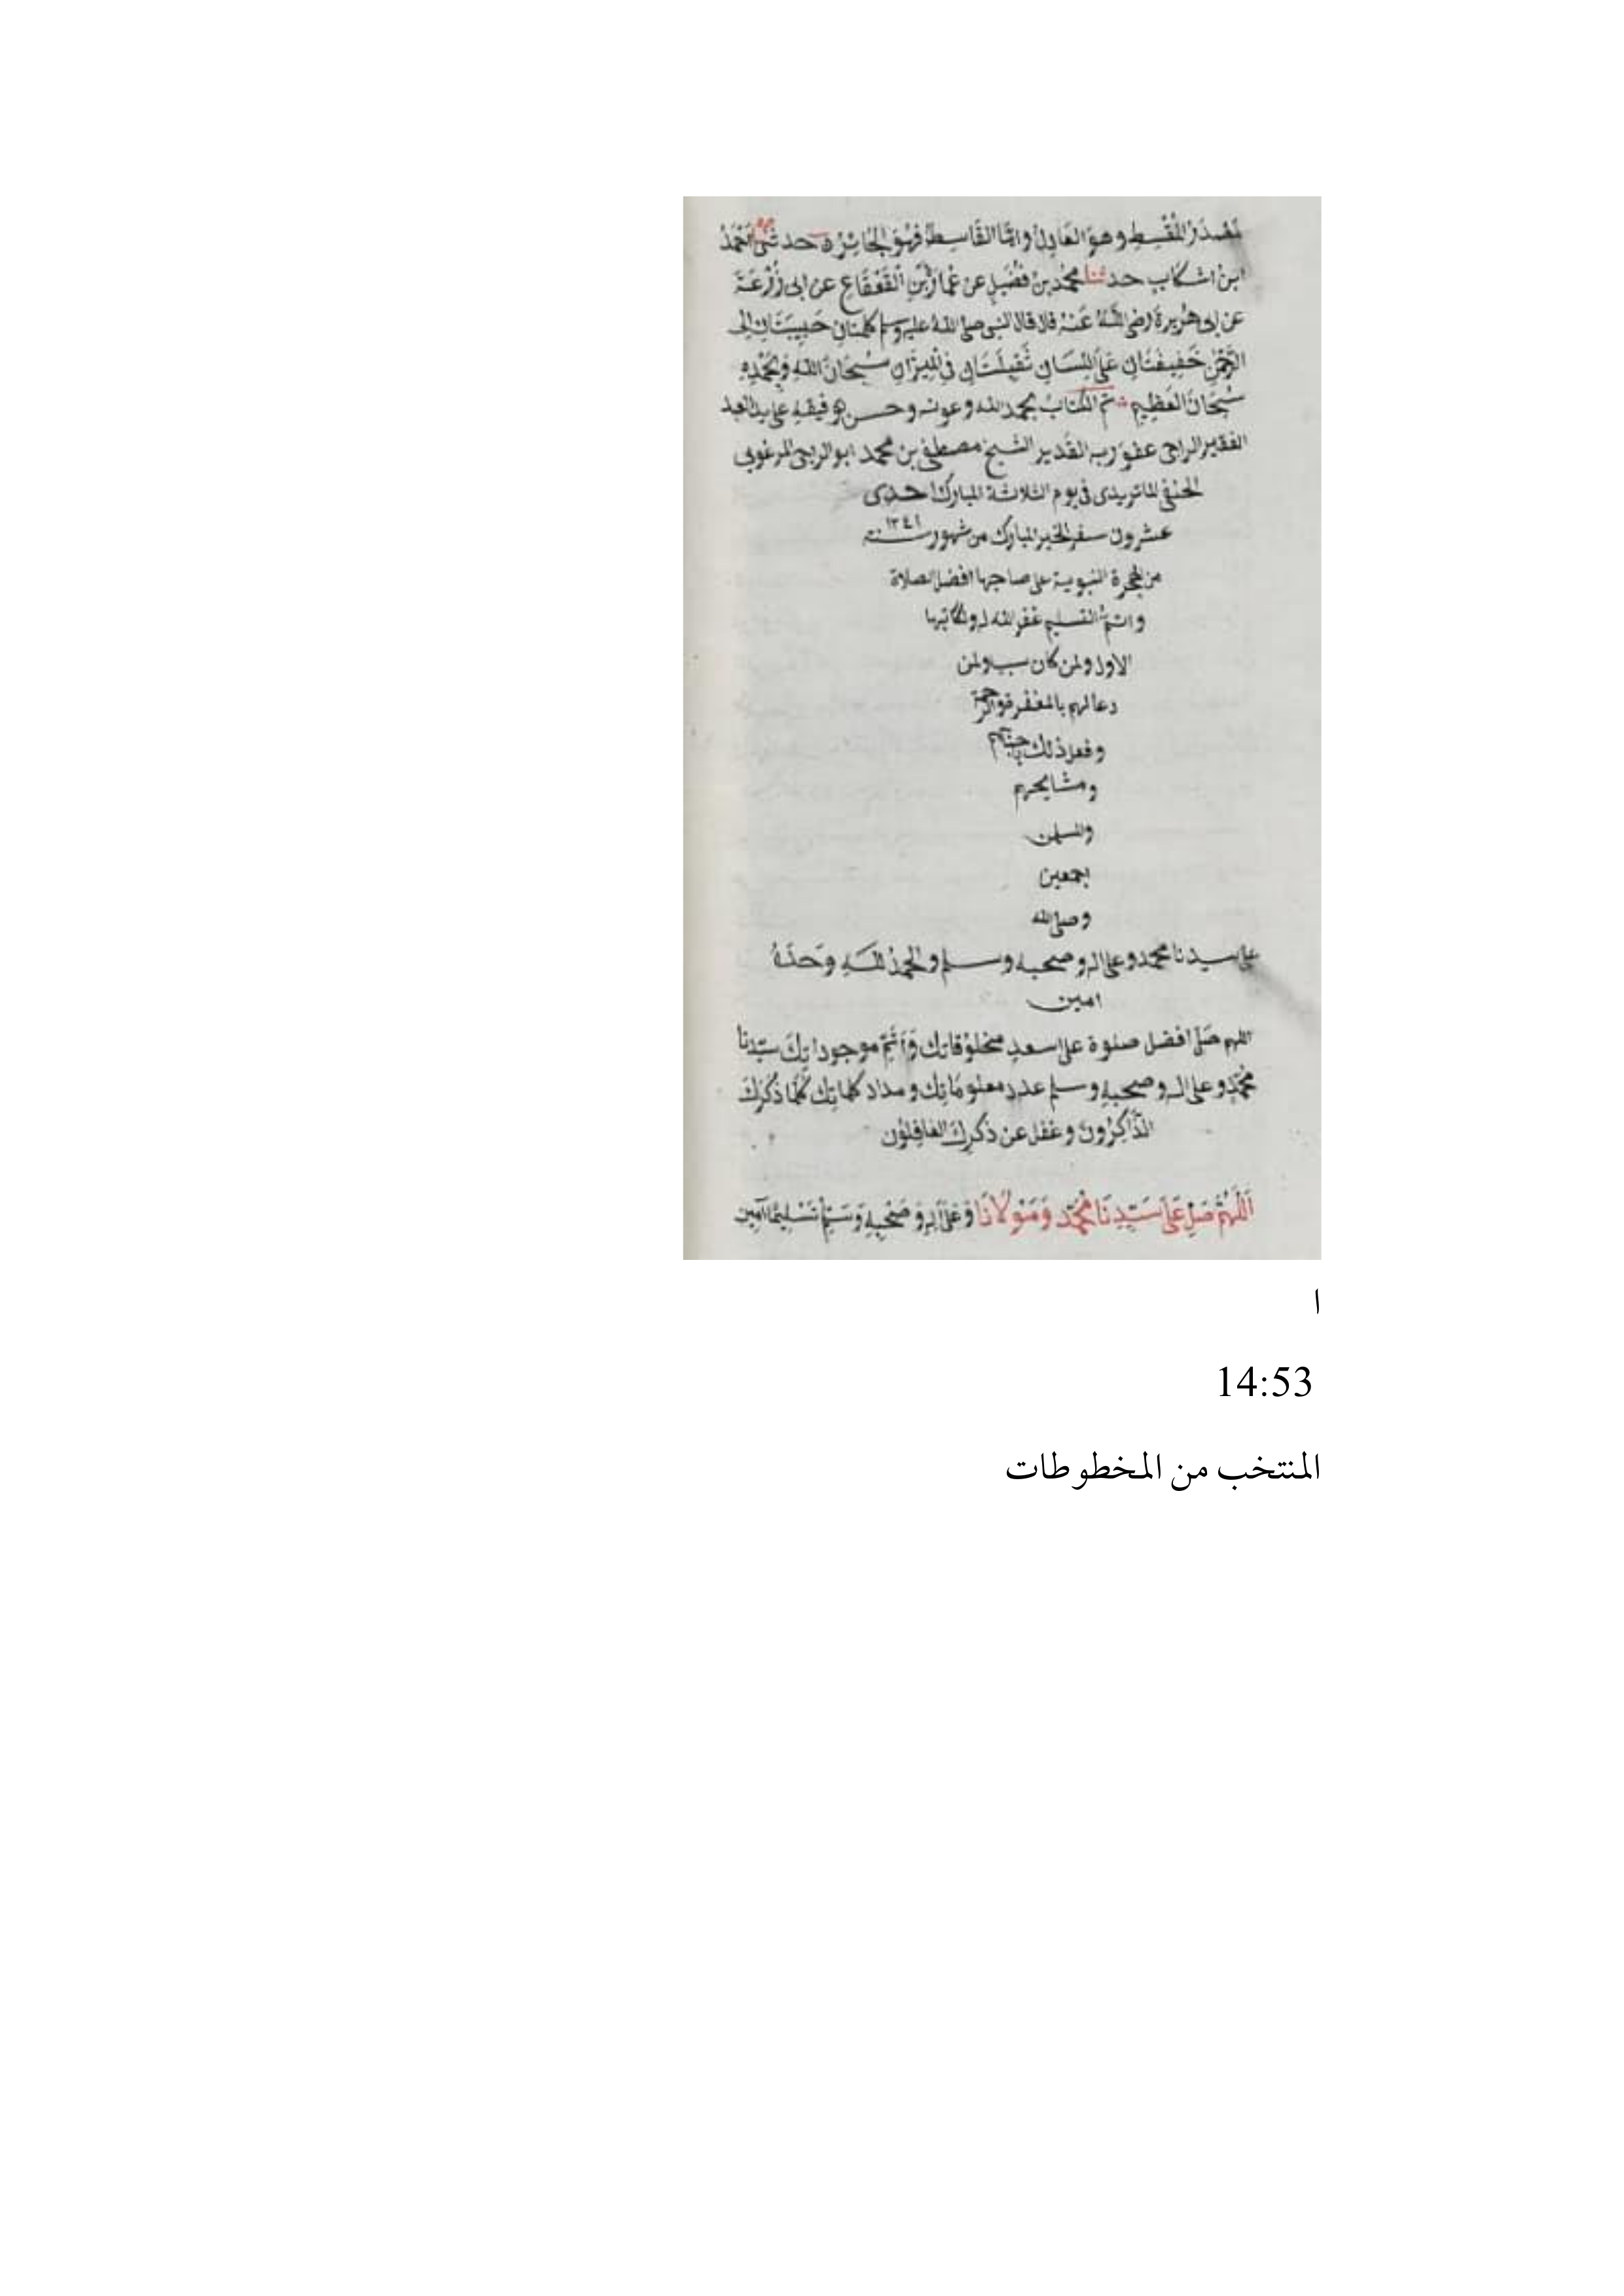 مَصْدَرُ المُقْسِطِ وهو العَادِلُ وامّا القَاسِطُ فهُوَ الجَائِرُ ه حدثنى اَحْمَدُ
ابن اشكاب حدثنا محمّد بن فُضَيلٍ عن عُمَارَةَ بْنِ القَعْقَاعِ عن ابى زُرْعَةَ
عن ابى هريرة رضى اللّهُ عَنْهُ قال قال النبى صلى اللهُ عليه وسلم كلمتانِ حَبِيبَتَانِ اِلى
الرَّحْمٰنِ خَفِيفَتَانِ عَلَى اللِّسَانِ ثَقِيلَتَانِ فى المِيزَانِ سُبْحَانَ اللّهِ وَبِحَمْدِهِ
سُبْحَانَ العَظِيمِ تم الكتابُ بحمد الله وعونه وحسن توفيقه على يد العبد
الفقير الراجى عفو ربه القدير الشيخ مصطفى بن محمد ابو الريحى المرغوبى
الحنفى الماتريدى فى يوم الثلاثة المبارك احدى
عشرون سفر الخير المبارك من شهور سنة ١٢٤١
من الهجرة النبوية على صاحبها افضل الصلاة
واتمُّ التسليم غفر الله له ولكاتبها
الاول ولمن كان سببا ولمن
دعا لهم بالمغفرة والرحمة
وفعل ذلك
ومشايخهم
والمسلمين
اجمعين
وصلى الله
على سيدنا محمد وعلى اله وصحبه وسلم والحمدُ للهِ وَحدَهُ
امين
اللهم صَلّ افضل صلوة على اسعد مخلوقاتك وَاَتَمّ موجوداتِكَ سيّدنا
مُحمّد وعلى اله وصحبهِ وسلم عدد معلومَاتِك ومداد كلماتِك كُلَّمَا ذَكَرَكَ
الذَّاكِرُونَ وغفل عن ذكرِكَ الغافِلُون
اَللّهُمَّ صَلِّ عَلَى سَيِّدِنَا مُحَمَّد وَمَوْلَانَا وَعَلَى آلِهِ وَصَحْبِهِ وَسَلِّمْ تَسْلِيمًا آمِين
ا
14:53
المنتخب من المخطوطات